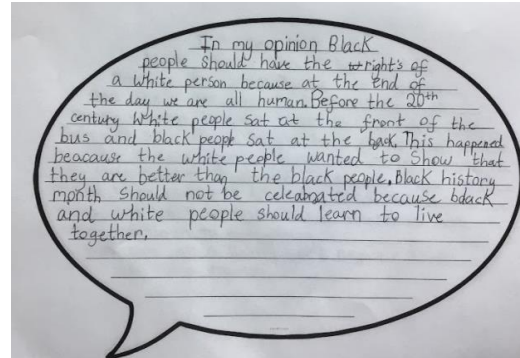 In my opinion Black
people should have the right's of
a white person because at the end of
the day we are all human. Before the 20th
century White people sat at the front of the
bus and black people sat at the back. This happened
beacause the white people wanted to show that
they are better than the black people. Black history
month should not be celeabrated because bdack
and white people should learn to live
together.